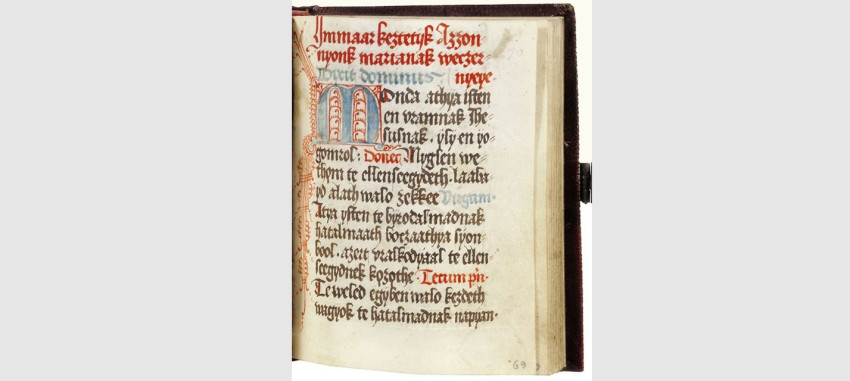 Immaar keztetijk Azzon
nyonk marianak weczer
Dixit dominus nyeye·
Monda athya isten
en vramnak Ihe
susnak. ylÿ en yo
gomrol: Donec Mÿglen we
thom te ellenseegydeth. laaba
yd alath walo zekkee Virgam·
Atya ysten te byrodalmadnak
hatalmaath boczaathya sÿon
bool. azert vraskodyaal te ellen
seegydnek kozothe· Tecum prin·
Te weled egyben walo kezdeth
wagyok te hatalmadnak napyan·
69